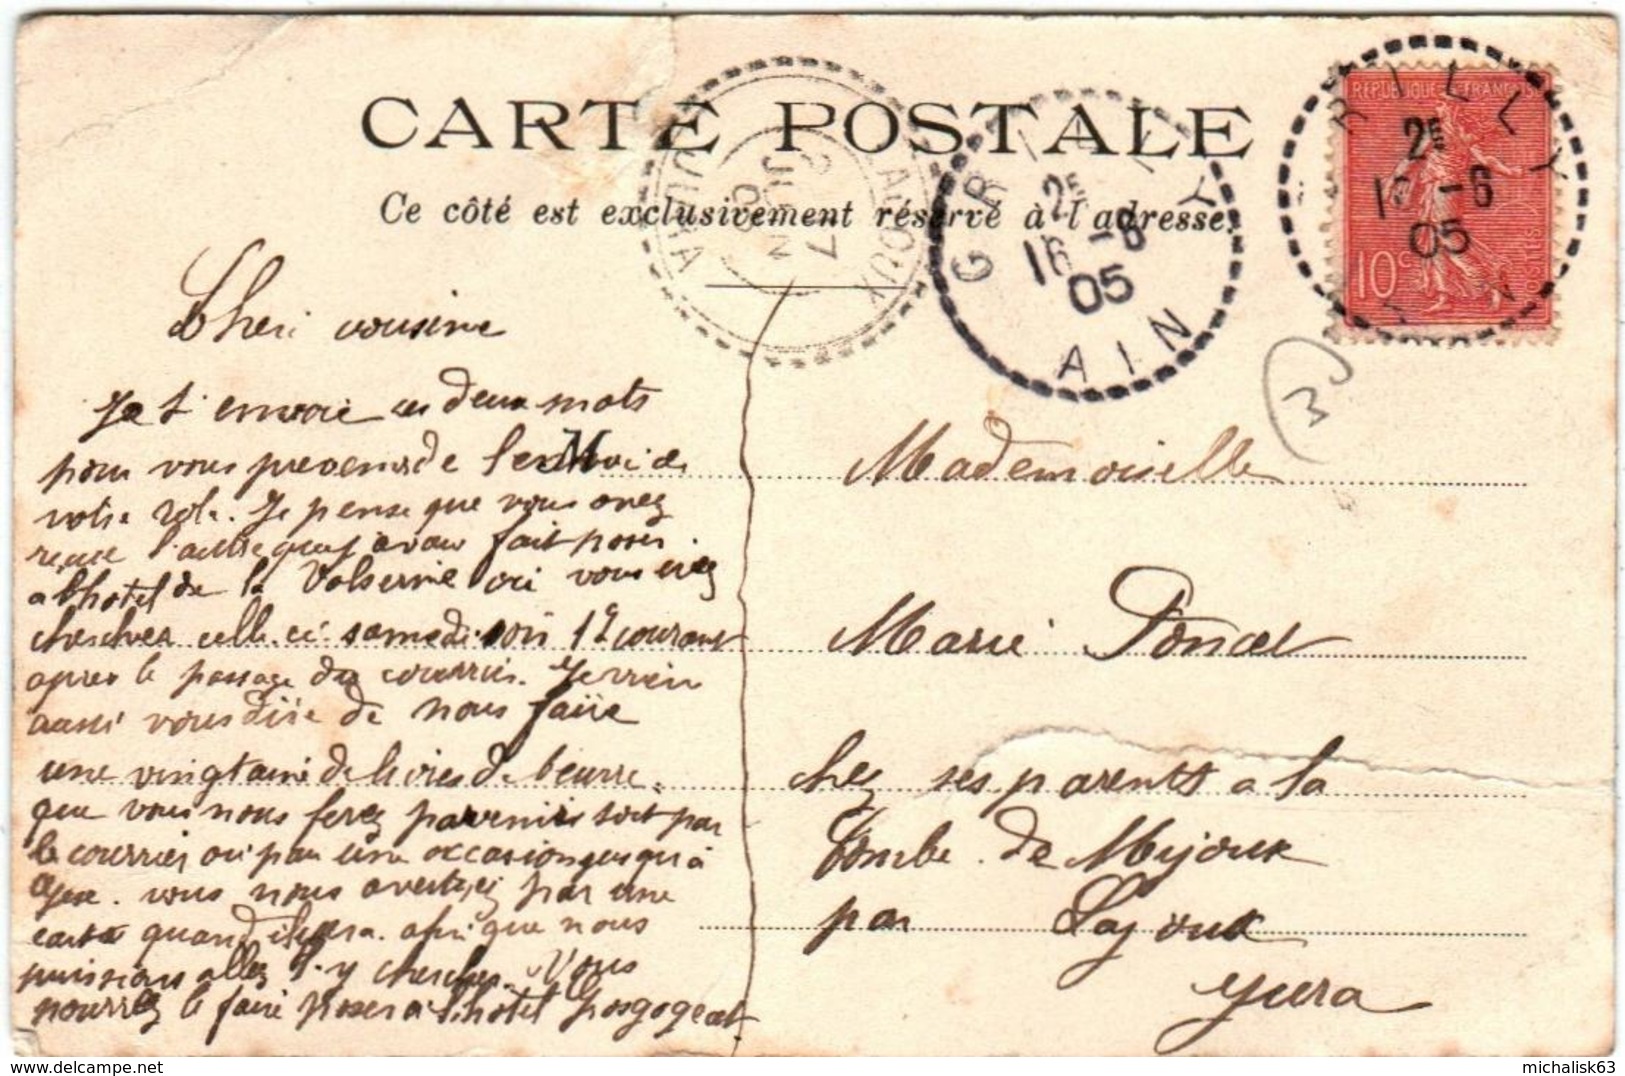 CARTE POSTALE
Ce côté est exclusivement réservé à l'adresse.
LAJOUX
JURA
GRILLY
2E
16 -6
05
AIN
GRILLY
2E
16 -6
05
AIN
REPUBLIQUE FRANÇAISE
10c
POSTES
3
Cheri cousine
Je t'envoie ces deux mots
pour vous prevenir de l'enMvoi de
votre Je pense que vous avez
l'autre que j'avais fait poser
a l'hotel de la Valserine ou vous irez
chercher celle ci samedi soir 17 courant
apres le passage du courrier. Je viens
aussi vous dire de nous faire
une vingtaine de livres de beurre.
que vous nous ferez parvenir soit par
le courrier ou par une occasion jusqu'à
Gex. vous nous avertirez par une
carte quand il sera afin que nous
puissions aller l'y chercher. Vous
pourrez le faire poser a l'hotel
Mademoiselle
Marie Poncet
chez ses parents a la
Combe de Mijoux
par Lajoux
Jura
michalisk63